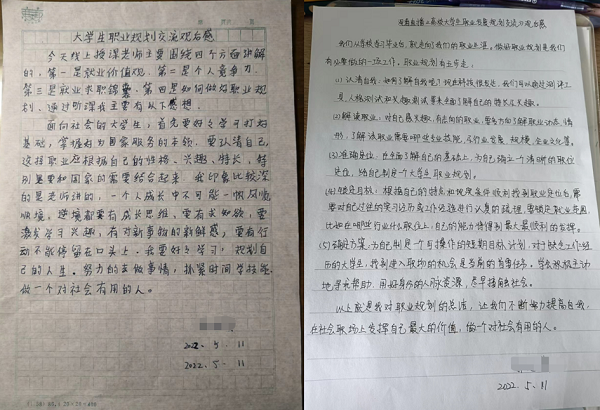 大学生职业规划交流观后感
今天线上授课老师主要围绕四个方面讲解
的，第一是就业价值观，第二是个人竞争力
第三是就业求职锦囊，第四是如何做好职业规
划、通过听课我主要有以下感想。
面向社会的大学生，首先要好好学习打好
基础，掌握好为国家服务的本领。要认清自己，
选择职业应根据自己的性格、兴趣、特长，特
别是要和国家的需要结合起来。我印象比较深
的是老师讲的，一个人成长中不可能一帆风顺
顺境，逆境都要有成长思维，要有求知欲，要
激发学习兴趣，有对新事物的新鲜感，要有行
动不能停留在口头上。我要好好学习，规划自
己的人生。努力的去做事情，抓紧时间学技能
做一个对社会有用的人。
2022.5.11
2022.5.11
我们从学校学习毕业后，就走向我们的职业生涯。做好职业规划是我们
有必要做的一项工作，职业规划有五步走。
(1) 认清自我：如何了解自我呢？现在科技很发达，我们可以通过测评工
具，人格测试和兴趣测试等来全面了解自己的特长和天赋。
(2) 解读职业，对自己感兴趣、有志向的职业，要多方向了解职业动态、情
形，了解该职业需要哪些专业技能，和行业发展、规模、企业文化等。
(3) 准确定位，在全面了解自己的基础上，为自己确立一个清晰的职位
定位，给自己制定一个大学生职业规划。
(4) 锁定目标：根据自己的特点和现实条件做到找到职业定位后，需
要对自己过往的学习经历或工作经验进行认真的梳理，要锁定职业范围，
比如在哪些行业什么职位上，自己的能力将得到最大最顺利的发挥。
(5) 确定方案，为自己制定一个可操作的短期目标计划，对于缺乏工作经
历的大学生，找到进入职场的机会是当前的首要任务。学会积极主动
地寻求帮助，用好身边的人脉资源，尽早接触社会。
以上就是我对职业规划的总结，让我们不断努力提高自我，
在社会职场上发挥自己最大的价值，做个对社会有用的人。
2022.5.11